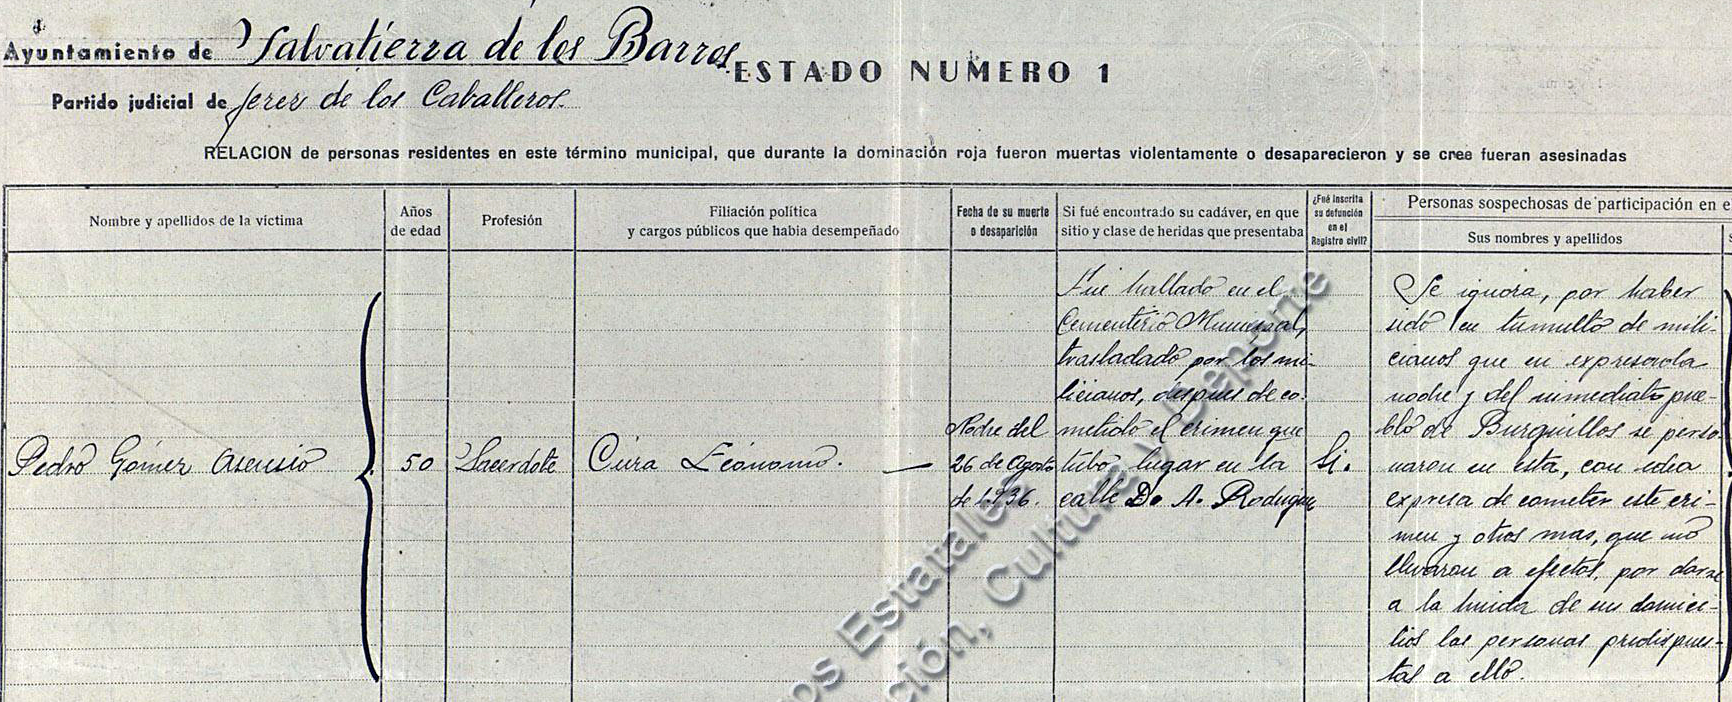 Ayuntamiento de Salvatierra de los Barros
ESTADO NUMERO 1
Partido judicial de Jerez de los Caballeros.
RELACION de personas residentes en este término municipal, que durante la dominación roja fueron muertas violentamente o desaparecieron y se cree fueran asesinadas
Nombre y apellidos de la víctima
Años
de edad
Profesión
Filiación política
y cargos públicos que había desempeñado
Fecha de su muerte
o desaparición
Si fué encontrado su cadáver, en que
sitio y clase de heridas que presentaba
¿Fué inscrita
su defunción
en el
Registro civil?
Personas sospechosas de participación en e
Sus nombres y apellidos
Pedro Gómez Asensio
50
Sacerdote
Cura Ecónomo. —
Noche del
26 de Agosto
de 1.936.
Fué hallado en el
Cementerio Municipal,
trasladado por los mi-
licianos, despues de co-
metido el crimen que
tubo lugar en la
calle D. A. Rodrigue
Si.
Se ignora, por haber
sido en tumulto de mili-
cianos que en expresada
noche y del inmediato pue-
blo de Burguillos se perso-
naron en esta, con idea
expresa de cometer este cri-
men y otros mas, que no
llevaron a efectos, por darse
a la huida de sus domici-
lios las personas predispues-
tas a ello.
os Estatales
ción, Cultura y Deporte